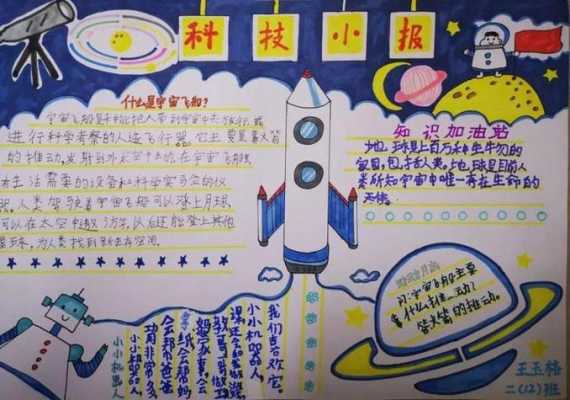 科技小报
什么是宇宙飞船?
宇宙飞船是一种能把人带到宇宙中去旅行,或
进行科学考察的人造飞行器。它主要是靠火箭
的推动,发射到外太空中去的。在宇宙飞船
生活需要的设备和科学实验的仪
器。人类驾驶着宇宙飞船可以登上月球,
可以在太空中遨游,以后还能登上其他
星球,为人类找到新生存空间。
知识加油站
地球是上百万种生物的
家园,包括人类,地球是目前人
类所知宇宙中唯一存在生命的
天体。
问:宇宙飞船主要
靠什么推动?
答:火箭的推动。
小小机器人
小小机器人,
功非常多,
会帮爸爸
拿纸会帮妈
小小机器人,
我们喜欢它。
王玉格
二(12)班